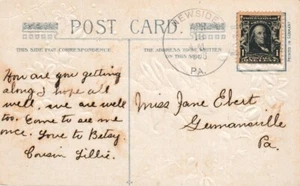 POST CARD.
THIS SIDE FOR CORRESPONDENCE
THE ADDRESS TO BE WRITTEN
ON THIS SIDE
PA.
You are you getting
along I hope all
well. we are well
too. Come to see me
once. Love to Betsy
Cousin Lillie.
Miss Jane Ebert
Germansville
Pa.